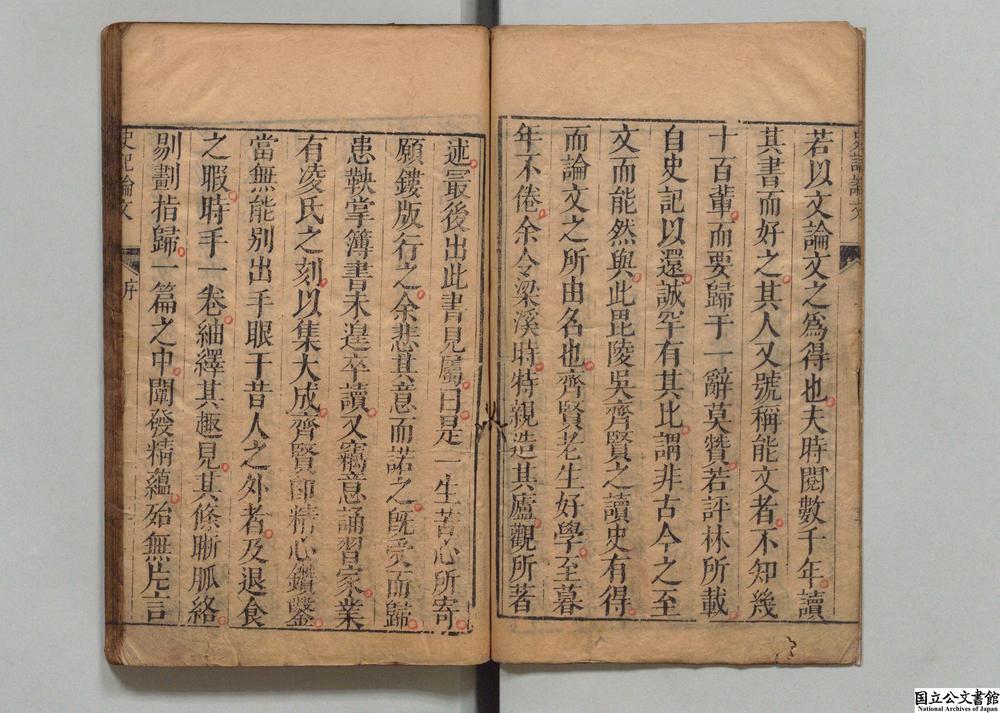 史記論文
若以文論文之爲得也夫時閱數千年讀
其書而好之其人又號稱能文者不知幾
十百輩而要歸于一辭莫贊若評林所載
自史記以還誠罕有其比謂非古今之至
文而能然與此毘陵吳齊賢之讀史有得
而論文之所由名也齊賢老生好學至暮
年不倦余令梁溪時特親造其廬觀所著
述最後出此書見屬曰是一生苦心所寄
願鏤版行之余悲其意而諾之旣受而歸
患鞅掌簿書未遑卒讀又竊意誦習家業
有凌氏之刻以集大成齊賢卽精心鑽鑿
當無能別出手眼于昔人之外者及退食
之暇時手一卷紬繹其趣見其條晰脈絡
剔劃指歸一篇之中闡發精蘊殆無片言
史記論文
序
国立公文書館
National Archives of Japan